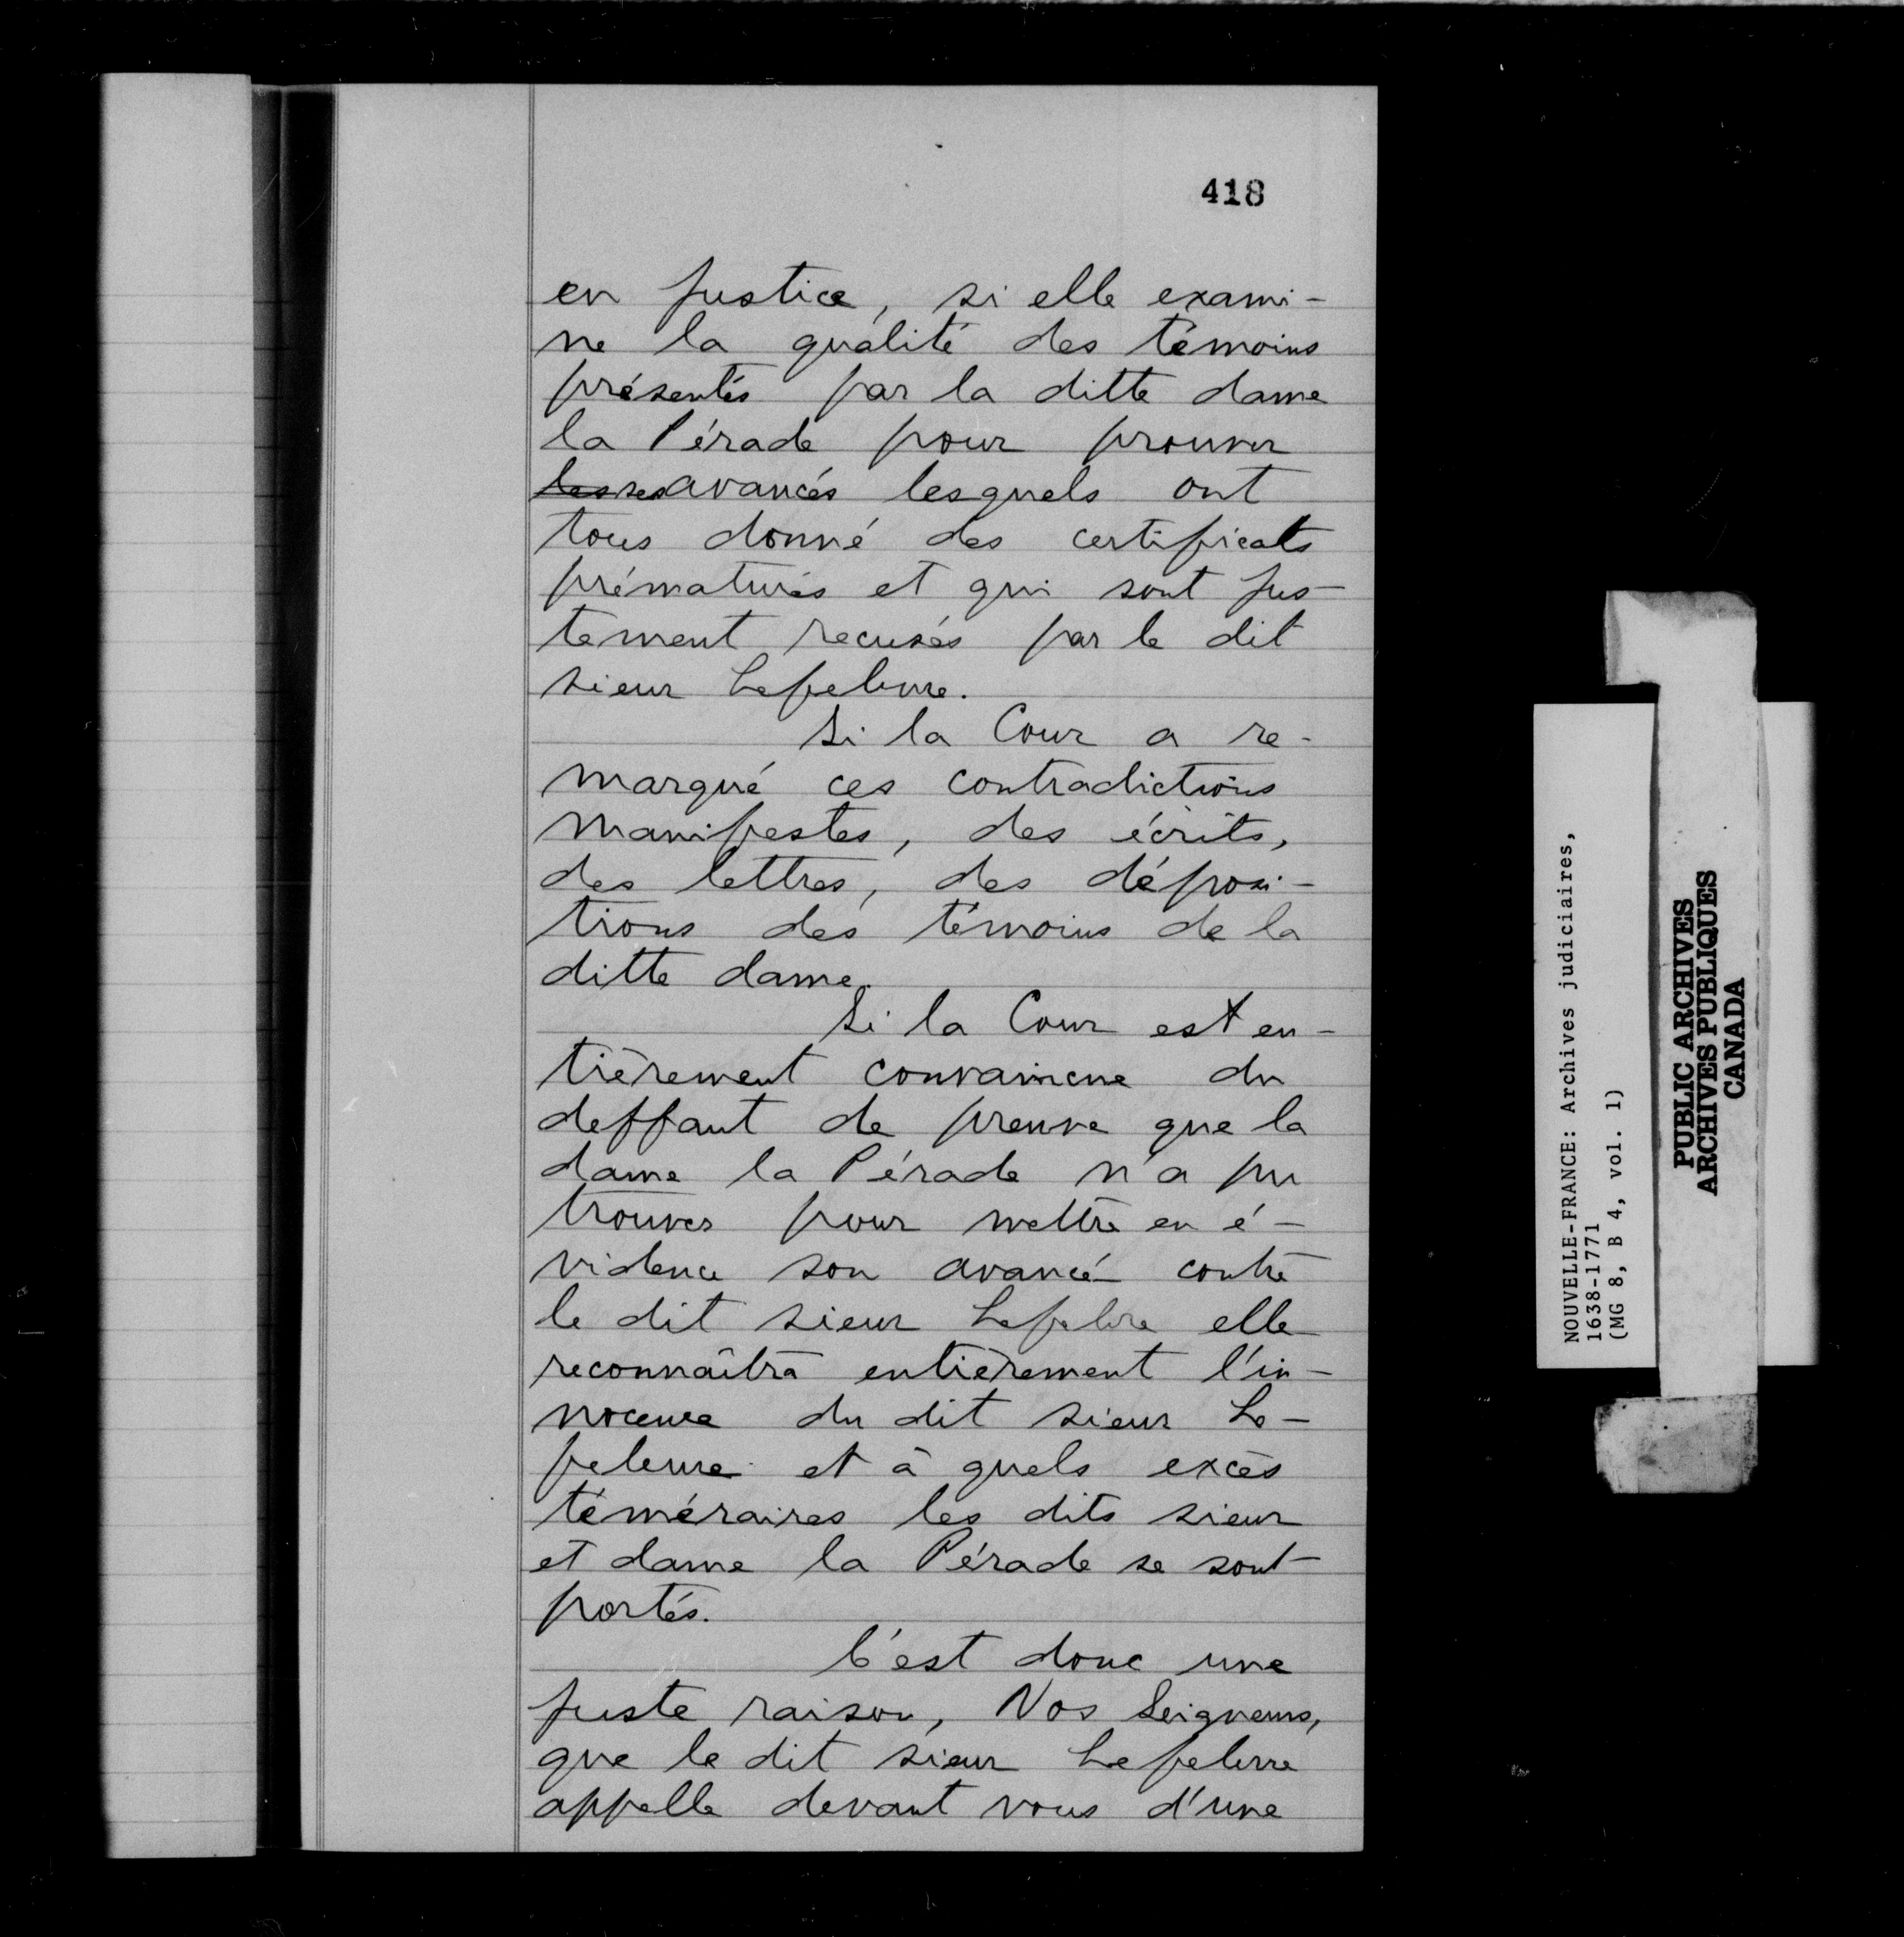 418
en justice, si elle exami-
ne la qualité des témoins
présentés par la ditte dame
la Pérade pour prouver
les ses avancés lesquels ont
tous donné des certificats
prématurés et qui sont jus-
tement recusés par le dit
sieur Lefebvre.
Si la Cour a re-
marqué ces contradictions
manifestes, des écrits,
des lettres, des déposi-
tions des témoins de la
ditte dame.
Si la Cour est en-
tièrement convaincue du
deffaut de preuve que la
dame la Pérade n'a pu
trouver pour mettre en é-
vidence son avancé contre
le dit sieur Lefebvre elle
reconnaîtra entièrement l'in-
nocence du dit sieur Le-
febvre et à quels excès
téméraires les dits sieur
et dame la Pérade se sont
portés.
C'est donc une
juste raison, Nos Seigneurs,
que le dit sieur Lefebvre
appelle devant vous d'une
NOUVELLE-FRANCE: Archives judiciaires,
1638-1771
(MG 8, B 4, vol. 1)
PUBLIC ARCHIVES
ARCHIVES PUBLIQUES
CANADA